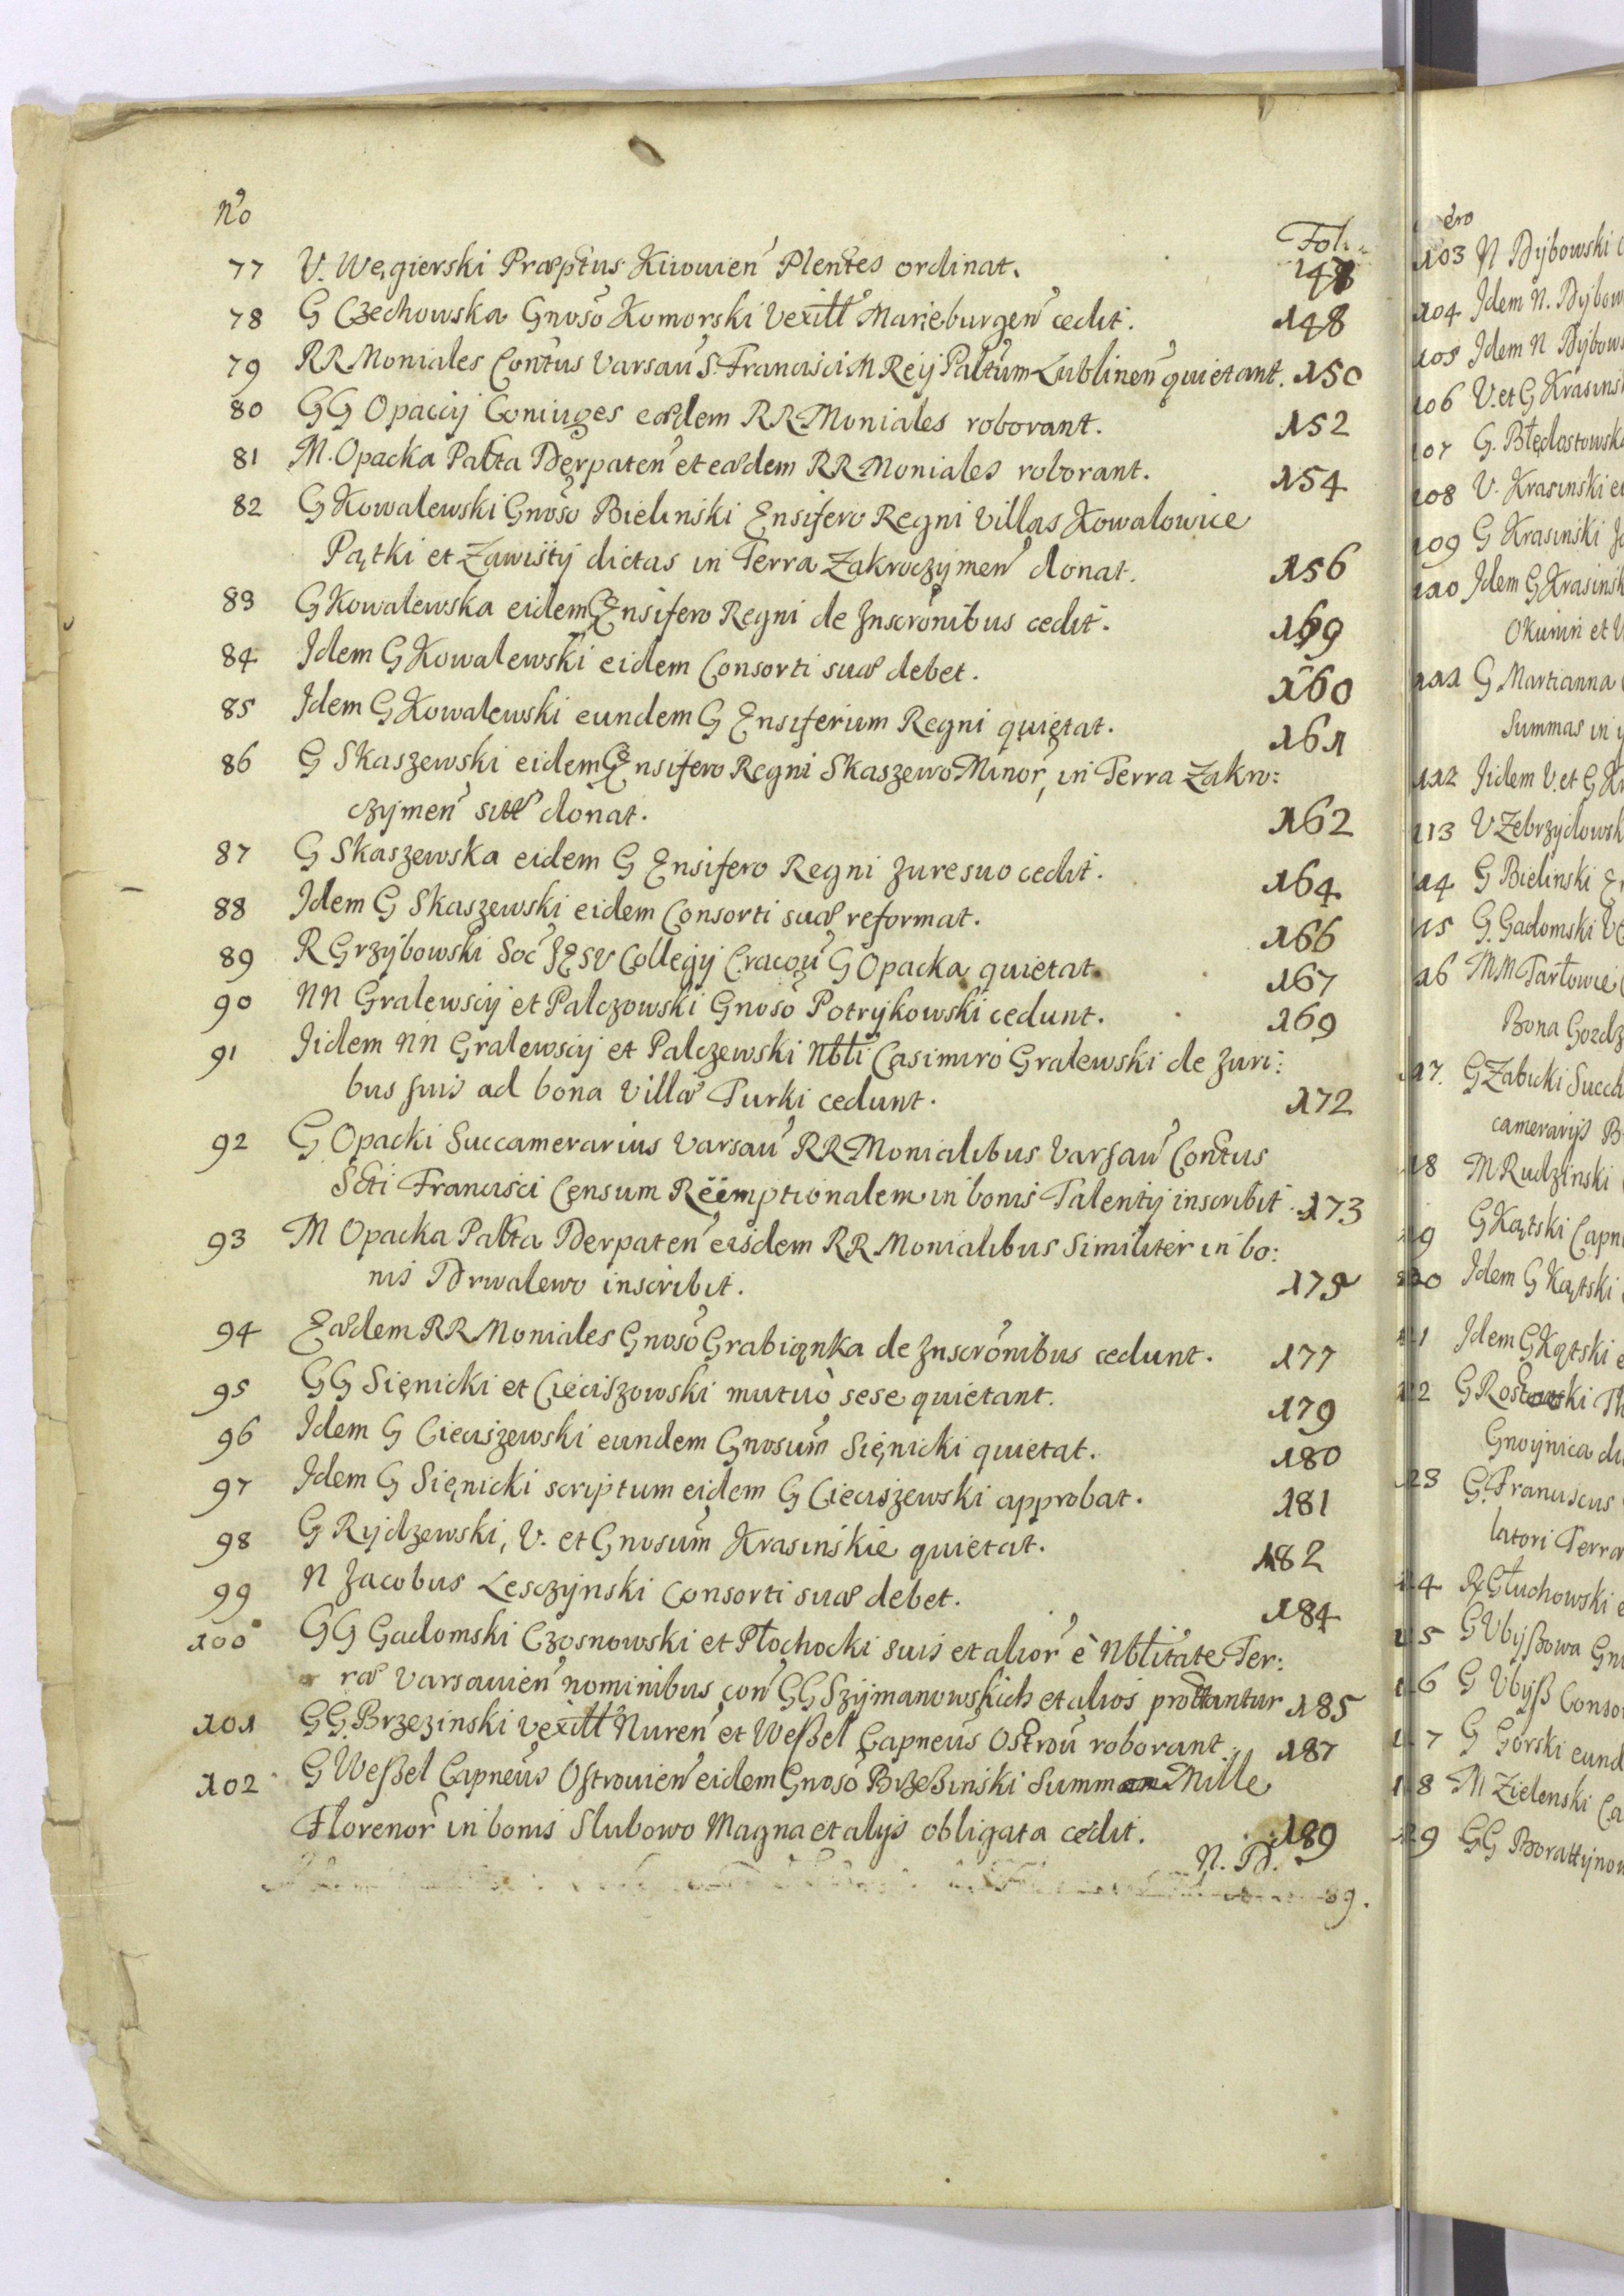 No
Fol.
77 V. Węgierski Præptus Kiiouien Plentes ordinat. 148
78 G Czechowska Gnoso Komorski Vexill Marieburgen cedit. 148
79 RR Moniales Contus Varsau S. Francisci M Reij Paltum Lublinen quietant. 150
80 GG Opaccij Coniuges eædem RR Moniales roborant. 152
81 M. Opacka Palta Derpaten et eædem RR Moniales roborant. 154
82 G Kowalewski Gnoso Bielinski Ensifero Regni Villas Kowalowice
Pątki et Zawisty dictas in Terra Zakroczymen donat. 156
83 G Kowalewska eidem G Ensifero Regni de Inscronibus cedit. 159
84 Idem G Kowalewski eidem Consorti suæ debet. 160
85 Idem G Kowalewski eundem G Ensiferum Regni quietat. 161
86 G Skaszewski eidem G Ensifero Regni Skaszewo Minor, in Terra Zakro:
czymen sitt donat. 162
87 G Skaszewska eidem G Ensifero Regni Iure suo cedit. 164
88 Idem G Skaszewski eidem Consorti suæ reformat. 166
89 R Grzybowski Soc IESV Collegij Cracou G Opacka quietat. 167
90 NN Gralewscij et Palczowski Gnoso Potrykowski cedunt. 169
91 Iidem NN Gralewscij et Palczewski Nbli Casimiro Gralewski de Iuri:
bus suis ad bona Villæ Turki cedunt. 172
92 G Opacki Succamerarius Varsau RR Monialibus Varsau Contus
Scti Francisci Censum Reemptionalem in bonis Falentij inscribit. 173
93 M Opacka Palta Derpaten eisdem RR Monialibus Similiter in bo:
nis Drwalewo inscribit. 175
94 Eædem RR Moniales Gnoso Grabiąnka de Inscronibus cedunt. 177
95 GG Sięnicki et Cieciszowski mutuò sese quietant. 179
96 Idem G Cieciszewski eundem Gnosum Sięnicki quietat. 180
97 Idem G Sięnicki scriptum eidem G Cieciszewski approbat. 181
98 G Rydzewski, V. et Gnosum Krasinskie quietat. 182
99 N Iacobus Lesczynski Consorti suæ debet. 184
100 GG Gadomski Czosnowski et Płochocki suis et alior è Nblitate Ter:
ræ Varsauien nominibus con GG Szymanowskich et alios prottantur 185
101 GG. Brzezinski Vexill Nuren et Weßel Capneus Ostrou roborant. 187
102 G Weßel Capneus Ostrouien eidem Gnoso Brzeßinski Summam Mille
Florenor in bonis Slubowo Magna et alijs obligata cedit. 189
N. D.
89.
ero
103 N Dybowski
104 Idem N. Dybow
105 Idem N Dybows
106 V. et G Krasinsk
107 G. Błędostowska
108 V. Krasinski ei
109 G Krasinski
110 Idem G Krasinsk
Okunin et
111 G Martianna
Summas in
112 Iidem V. et G Kr
113 V Zebrzydowsk
14 G Bielinski En
15 G. Gadomski
16 MM Tarłowie
Bona Gozdz
17. G Zabicki Succa
camerarijs B
18 M Rudzinski
19 G Kątski Capn
20 Idem G Kątski
21 Idem G Kątski e
G Rostowski
Gnoynica
23 G. Franciscus
latori Terræ
24 R Głuchowski e
G Vbyßowa Gn
G Vbyß Conso
7 G Gorski eund
8 M Zielenski Ca
29 GG Borattynow